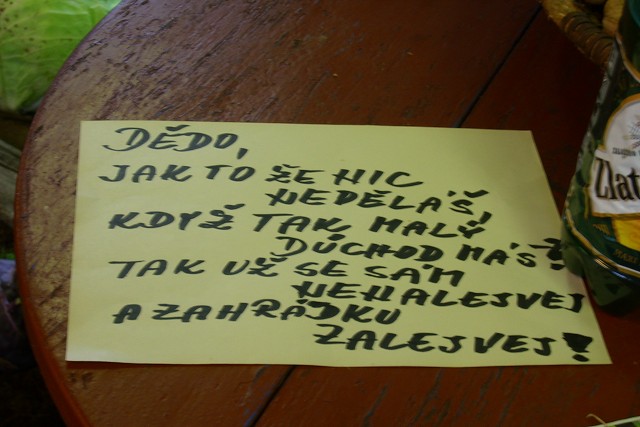 DĚDO,
JAK TO ŽE NIC
NEDĚLÁŠ,
KDYŽ TAK MALÝ
DŮCHOD MÁŠ?
TAK UŽ SE SÁM
NENALEJVEJ
A ZAHRÁDKU
ZALEJVEJ!
Zlat